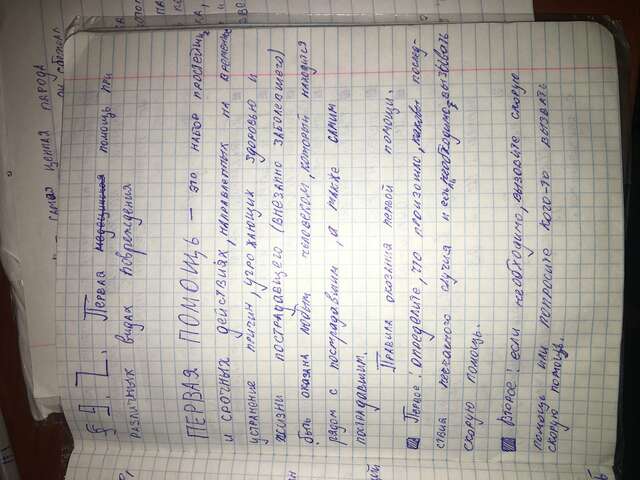 § 4.2. Первая медецинская помощь при
различных видах повреждения
ПЕРВАЯ ПОМОЩЬ — это набор простейш
и срочных действиях, направленных на временн
устранение причин, угрожающих здоровью и
жизни пострадавшего (внезапно заболевшего)
быть оказана любым человеком, который находится
рядом с пострадавшим, а также самим
пострадавшим.
Правила оказания первой помощи.
Первое! определите, что произошло, каковы послед-
ствия несчастного случая и есть необходимо вызывать
скорую помощь.
Второе! если необходимо, вызовите скорую
помощь или попросите кого-то вызвать
скорую помощь.
САМАЯ ЦЕННАЯ ПОРОДА